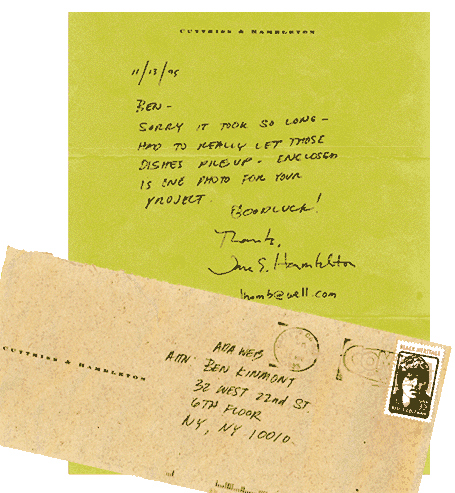 CUTTRISS & HAMBLETON
11/13/95
BEN-
SORRY IT TOOK SO LONG-
HAD TO REALLY LET THOSE
DISHES PILE UP - ENCLOSED
IS ONE PHOTO FOR YOUR
PROJECT.
GOOD LUCK!
Thanks,
Jane S. Hambleton
hamb@well.com
BLACK HERITAGE
CUTTRISS & HAMBLETON
ADA WEB
ATTN: BEN KINMONT
32 WEST 22nd ST
6TH FLOOR
NY, NY 10010